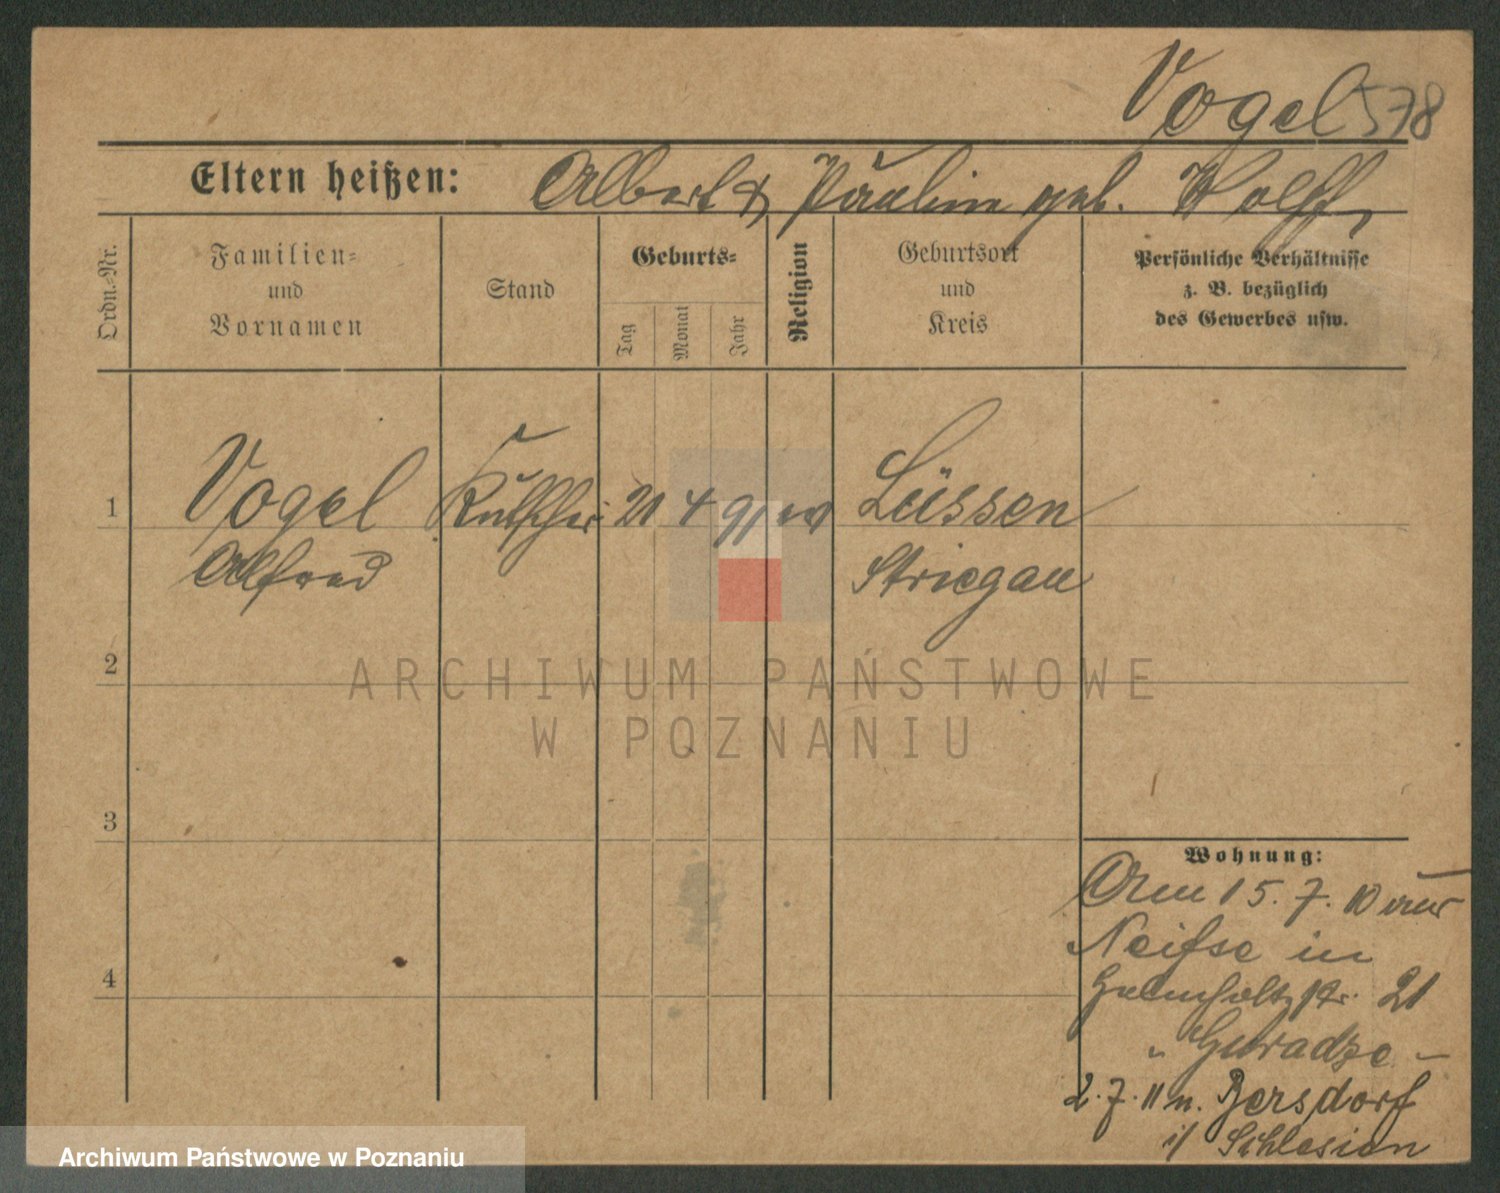 Vogel 578
Eltern heißen: Albert & Pauline geb. Wolff,
Ordn.-Nr.
Familien-
und
Vornamen
Stand
Geburts-
Tag
Monat
Jahr
Religion
Geburtsort
und
Kreis
Persönliche Verhältnisse
z. B. bezüglich
des Gewerbes usw.
1 Vogel Kutscher 21 4 91 ev Lüssen
Alfred Striegau
2
ARCHIWUM PAŃSTWOWE
W POZNANIU
3
Wohnung:
Am 15. 7. 10 aus
Neisse in
21
" Guradze -
4
2. 7. 11 n. Bersdorf
i/ Schlesien
Archiwum Państwowe w Poznaniu